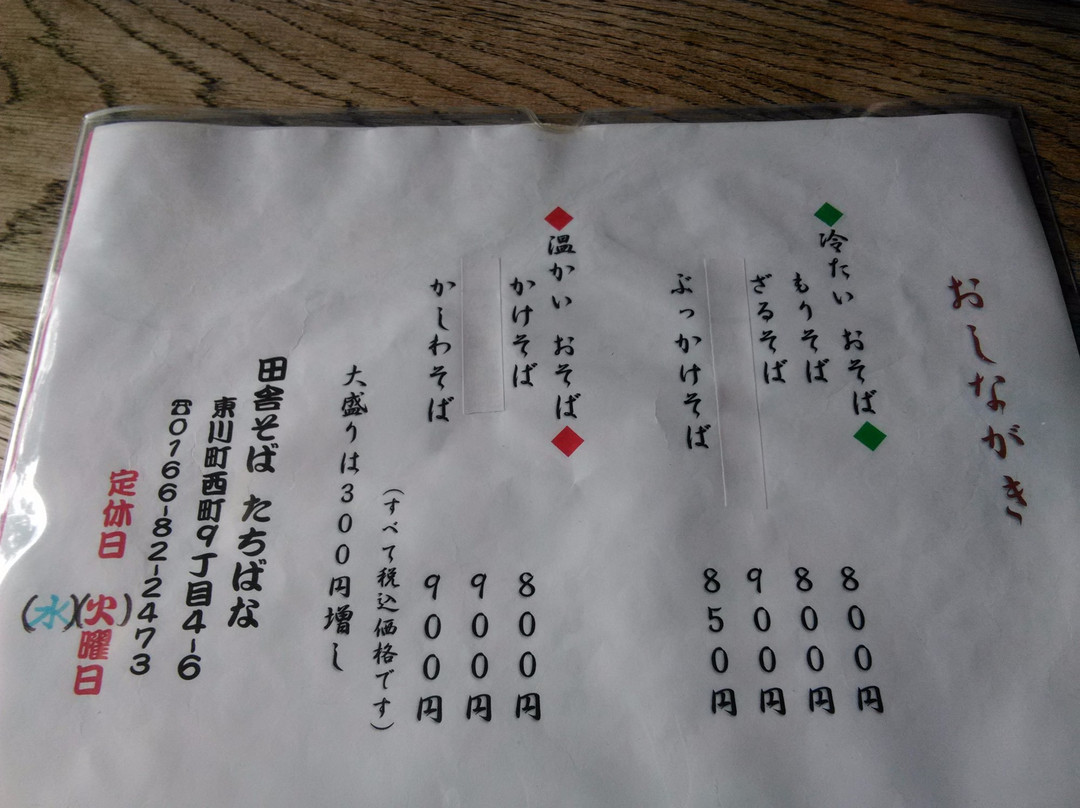 おしながき
◆冷たい おそば◆
もりそば 800円
ざるそば 800円
900円
ぶっかけそば 850円
◆温かい おそば◆
かけそば 800円
900円
かしわそば 900円
(すべて税込価格です)
大盛りは300円増し
田舎そば たちばな
東川町西町9丁目4-6
☎0166-82-2473
定休日 (水)(火)曜日